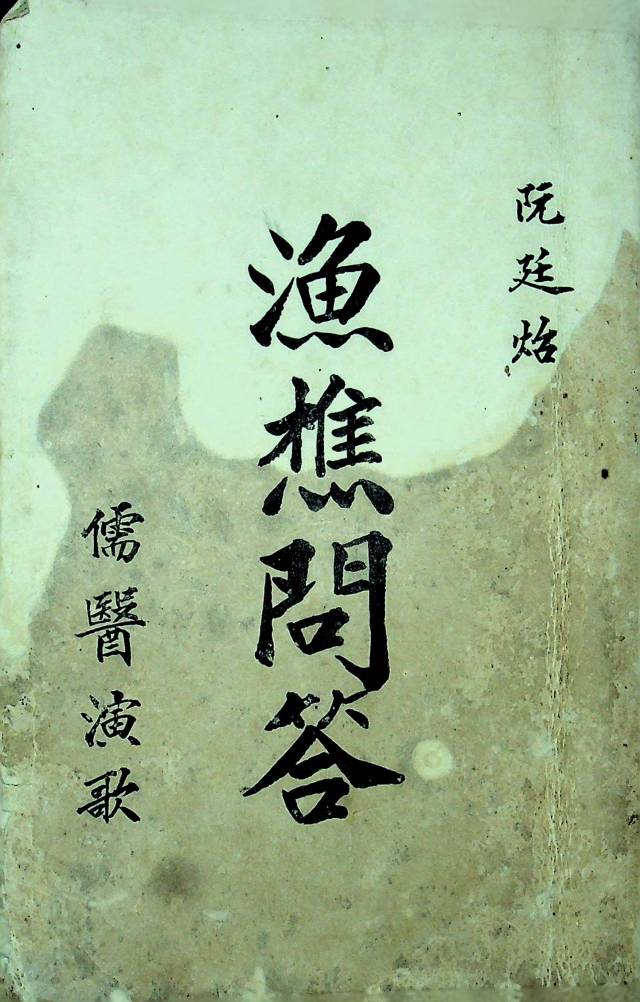 阮廷炤
漁樵問答
儒醫演歌